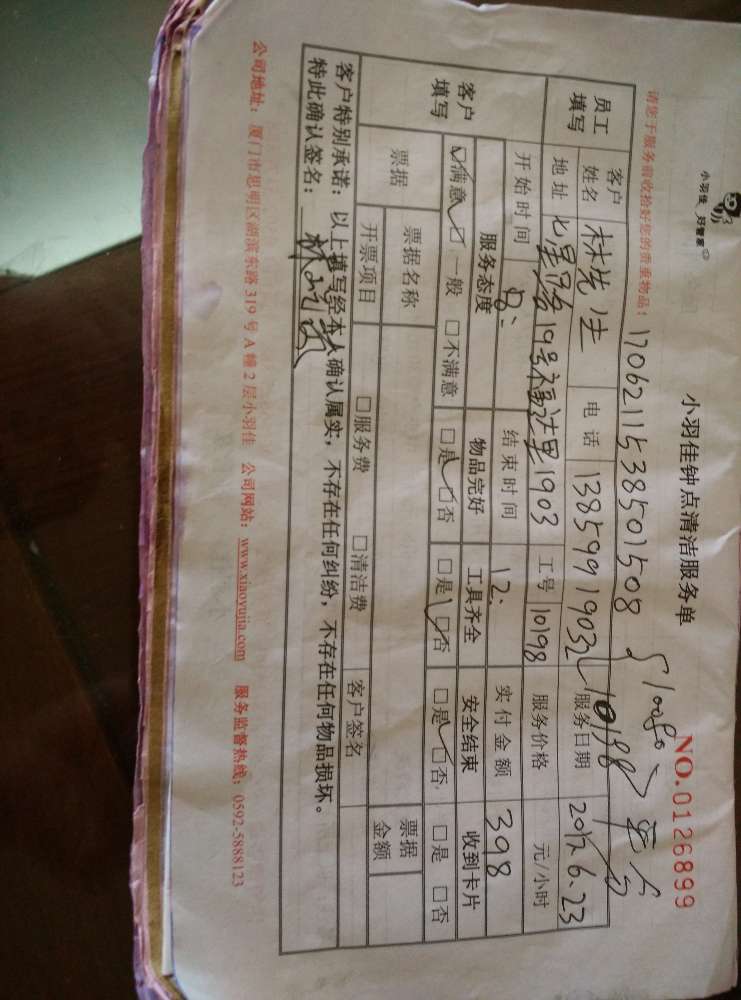 小羽佳 好管家
小羽佳钟点清洁服务单
NO.0126899
请您于服务前收拾好您的贵重物品!
1706211538501508
10198
员工填写
客户姓名 林先生 电话 13859919032 服务日期 2017.6.23
地址 七星路19号福达里1903 工号 10198 服务价格 元/小时
开始时间 8: 结束时间 12: 实付金额 398
客户填写
服务态度 物品完好 工具齐全 安全结束 收到卡片
□满意 □一般 □不满意 □是 □否 □是 □否 □是 □否 □是 □否
票据 票据名称 客户签名 票据金额
开票项目 □服务费 □清洁费
客户特别承诺:以上填写经本人确认属实,不存在任何纠纷,不存在任何物品损坏。
特此确认签名:
公司地址:厦门市思明区湖滨东路319号A幢2层小羽佳 公司网站:www.xiaoyujia.com 服务监督热线:0592-5888123